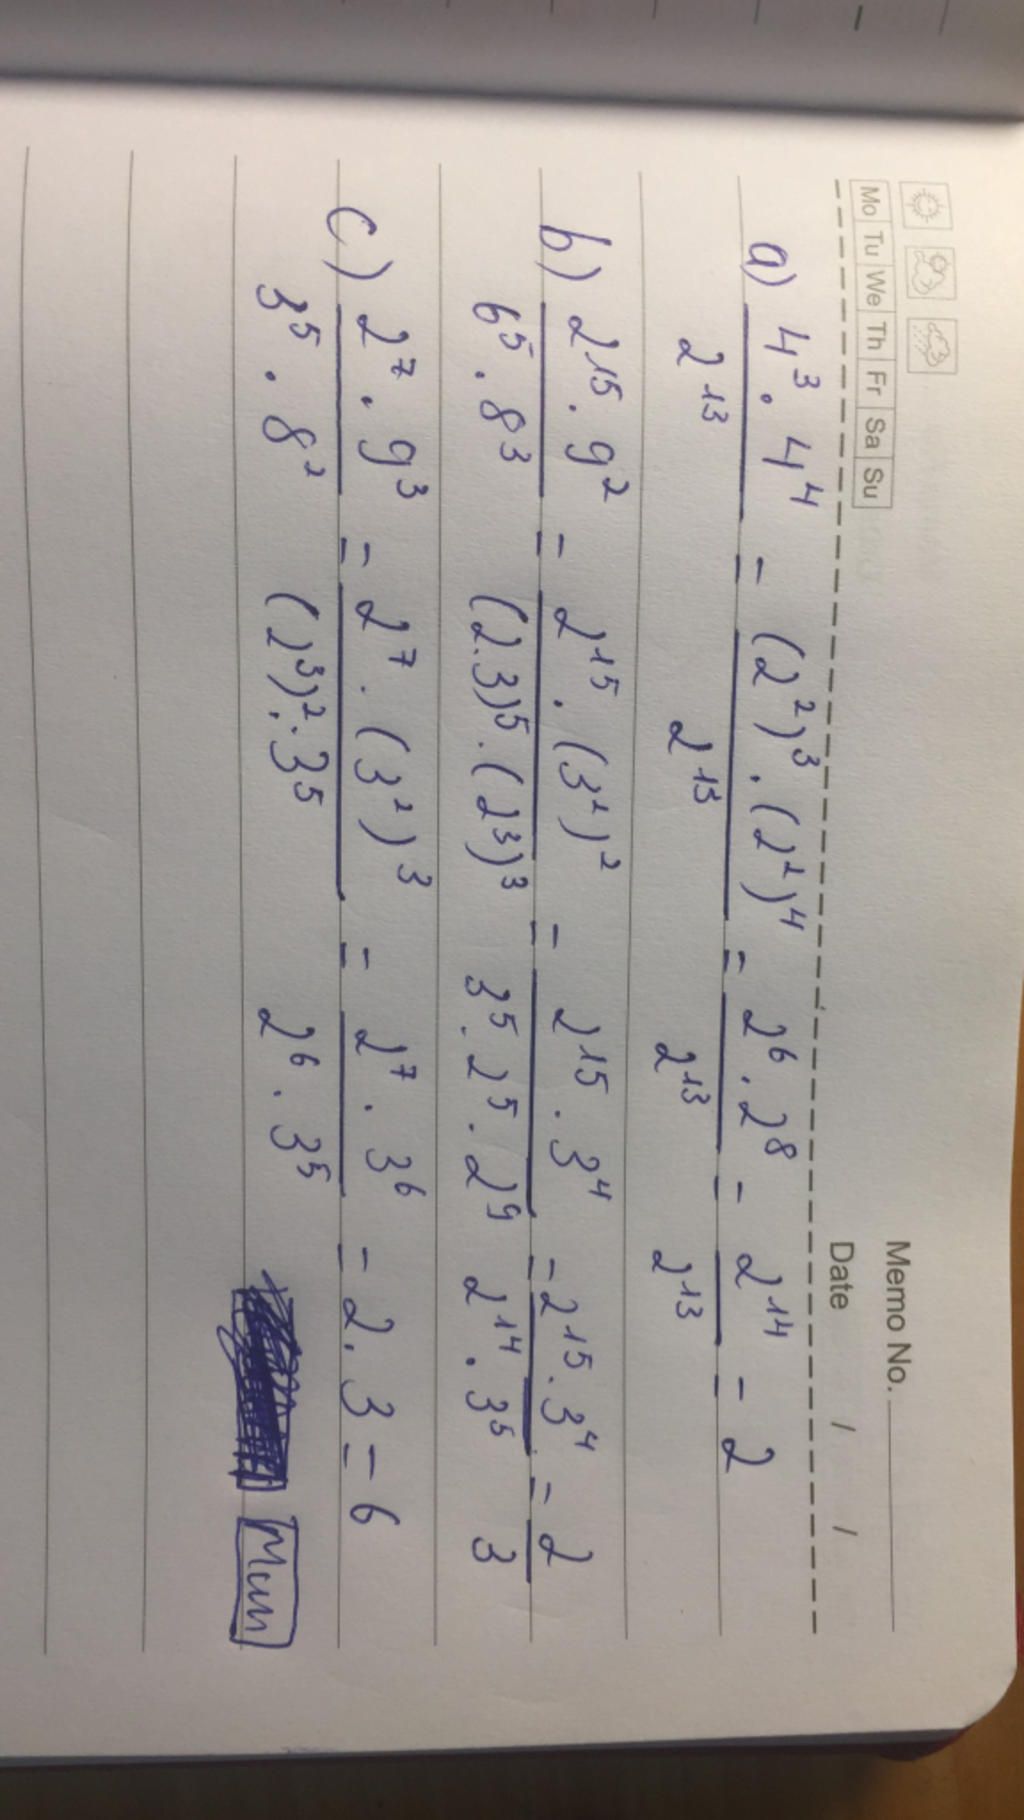 Memo No.
Mo Tu We Th Fr Sa Su
Date / /
a) 4³ . 4⁴ / 2¹³ = (2²)³ . (2²)⁴ / 2¹³ = 2⁶ . 2⁸ / 2¹³ = 2¹⁴ / 2¹³ = 2
b) 2¹⁵ . 9² / 6⁵ . 8³ = 2¹⁵ . (3²)² / (2.3)⁵ . (2³)³ = 2¹⁵ . 3⁴ / 3⁵ . 2⁵ . 2⁹ = 2¹⁵ . 3⁴ / 2¹⁴ . 3⁵ = 2 / 3
c) 2⁷ . 9³ / 3⁵ . 8² = 2⁷ . (3²)³ / (2³)² . 3⁵ = 2⁷ . 3⁶ / 2⁶ . 3⁵ = 2 . 3 = 6
Mun